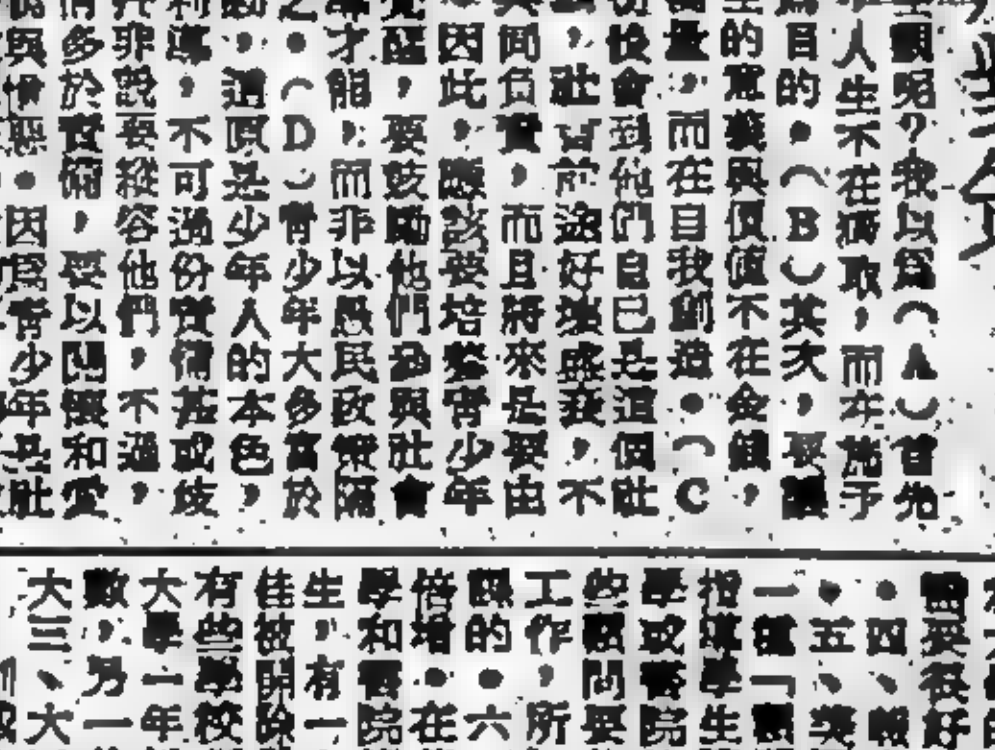 呢？我以為（A）首先
人生不在獲取，而在施予
目的。（B）其次，要讓
的意義與價值不在金錢，
量，而在自我創造。（C
會到他們自己是這個社
，社會前途好壞盛衰，不
同負責，而且將來是要由
因此，應該要培養青少年
醒，要鼓勵他們參與社會
才能，而非以愚民政策隔
。（D）青少年大多富於
，這原是少年人的本色，
導，不可過份責備甚或歧
非說要縱容他們，不過，
多於責備，要以關懷和愛
。因為青少年是社
很好
。四、
。五、獎
一種「
指導學生
學或醫院
些顧問要
工作，所
課的。六
倍增。在
學和醫院
生，有一
佳被開除
有些學校
大學一年
數，乃一
大三、大